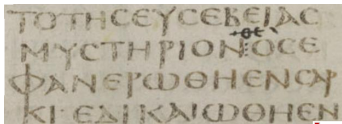 ΤΟΤΗϹΕΥϹΕΒΕΙΑϹ
θε
ΜΥϹΤΗΡΙΟΝΟϹΕ
ΦΑΝΕΡΩΘΗΕΝϹΑΡ
ΚΙ·ΕΔΙΚΑΙΩΘΗΕΝ